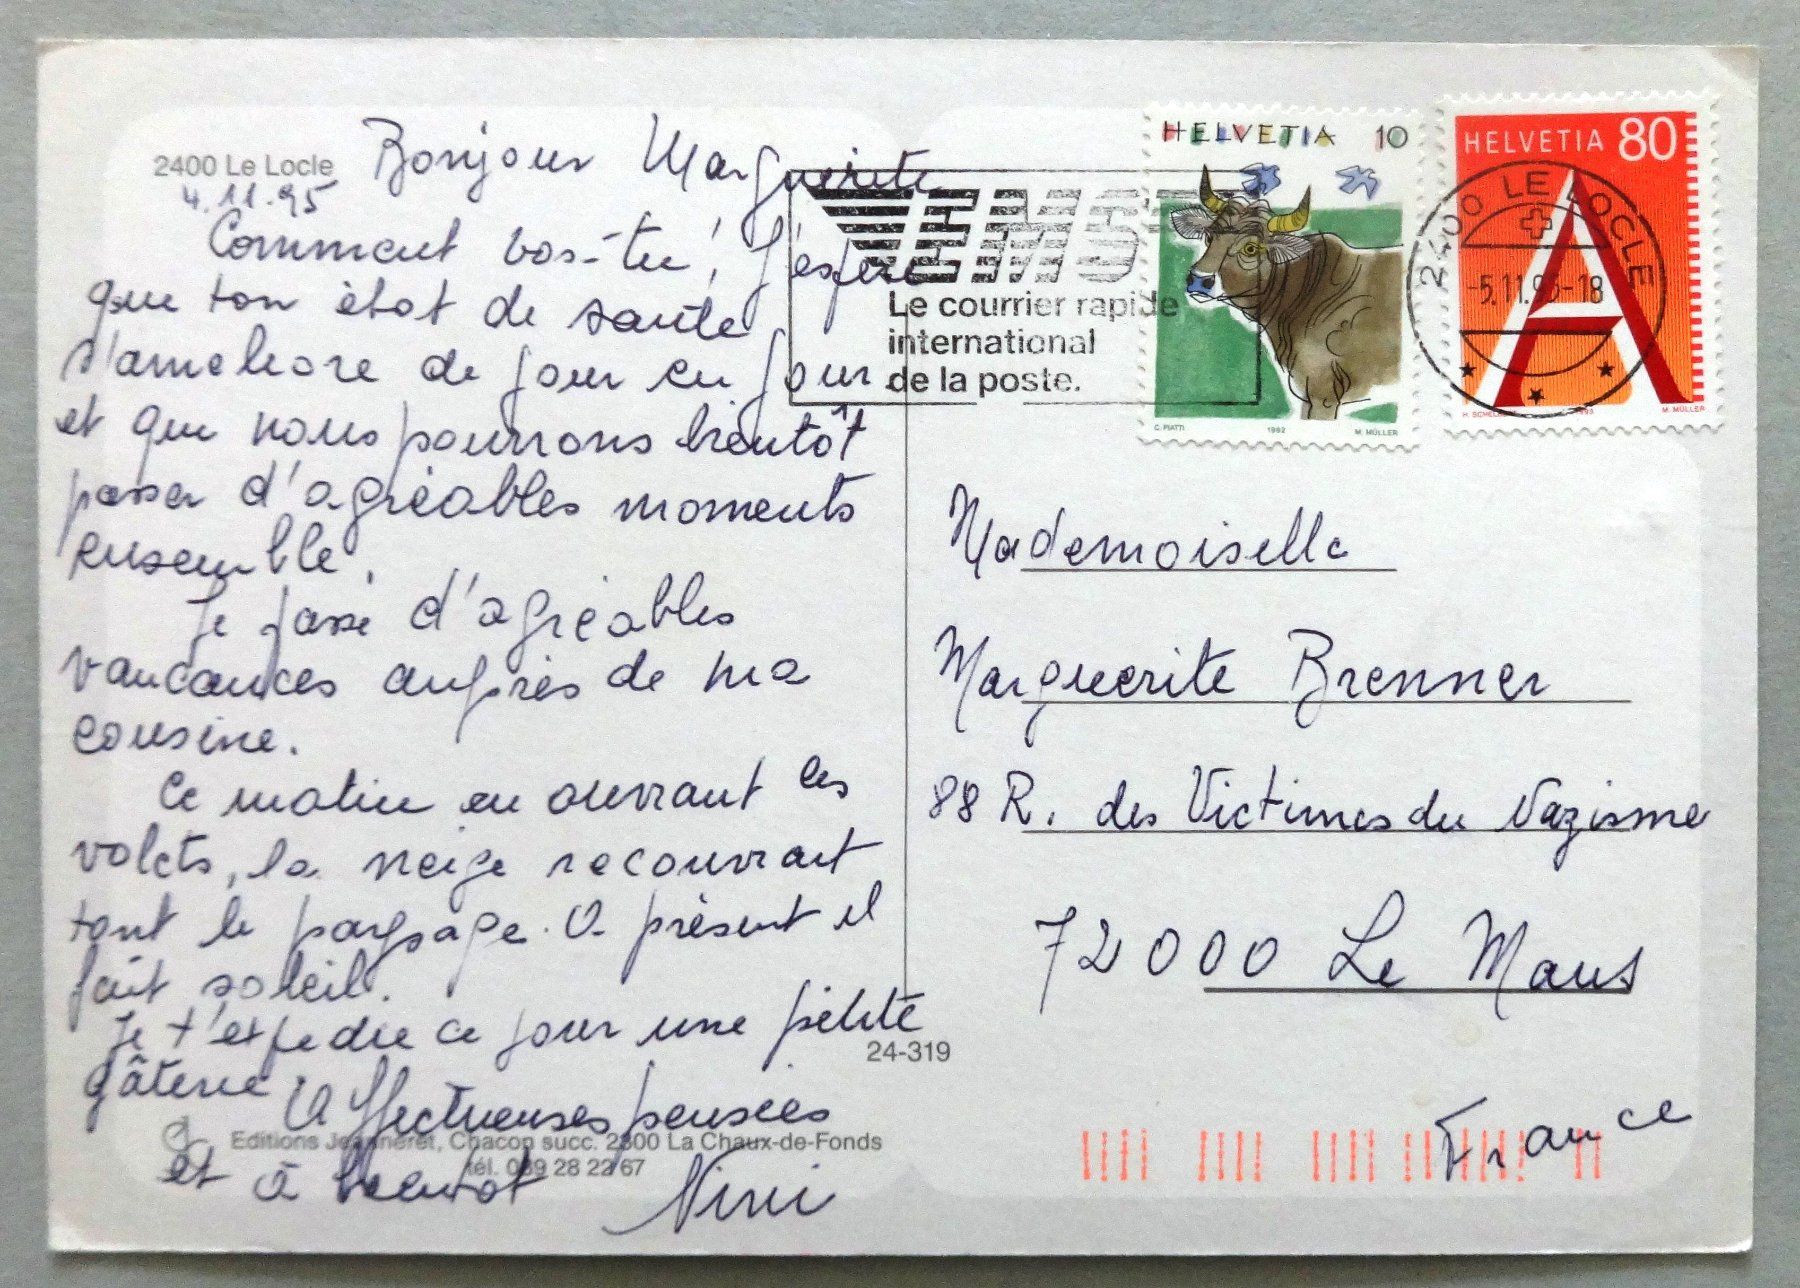 2400 Le Locle
4.11.95
Bonjour Marguerite
Comment vas-tu, j'espère
que ton état de santé
s'améliore de jour en jour
et que nous pourrons bientôt
passer d'agréables moments
ensemble.
Je passe d'agréables
vacances auprès de ma
cousine.
Ce matin en ouvrant les
volets, la neige recouvrait
tout le paysage. A présent il
fait soleil.
Je t'expédie ce jour une petite
gâterie
Affectueuses pensées
et à bientôt Nini
24-319
Editions Jeanneret, Chacon succ. 2300 La Chaux-de-Fonds
tél. 039 28 22 67
EMS
Le courrier rapide
international
de la poste.
HELVETIA 10
C. PIATTI 1992 M. MÜLLER
HELVETIA 80
A
M. MÜLLER
2400 LE LOCLE
-5.11.95-18
Mademoiselle
Marguerite Brenner
88 R. des Victimes du Nazisme
72000 Le Mans
France